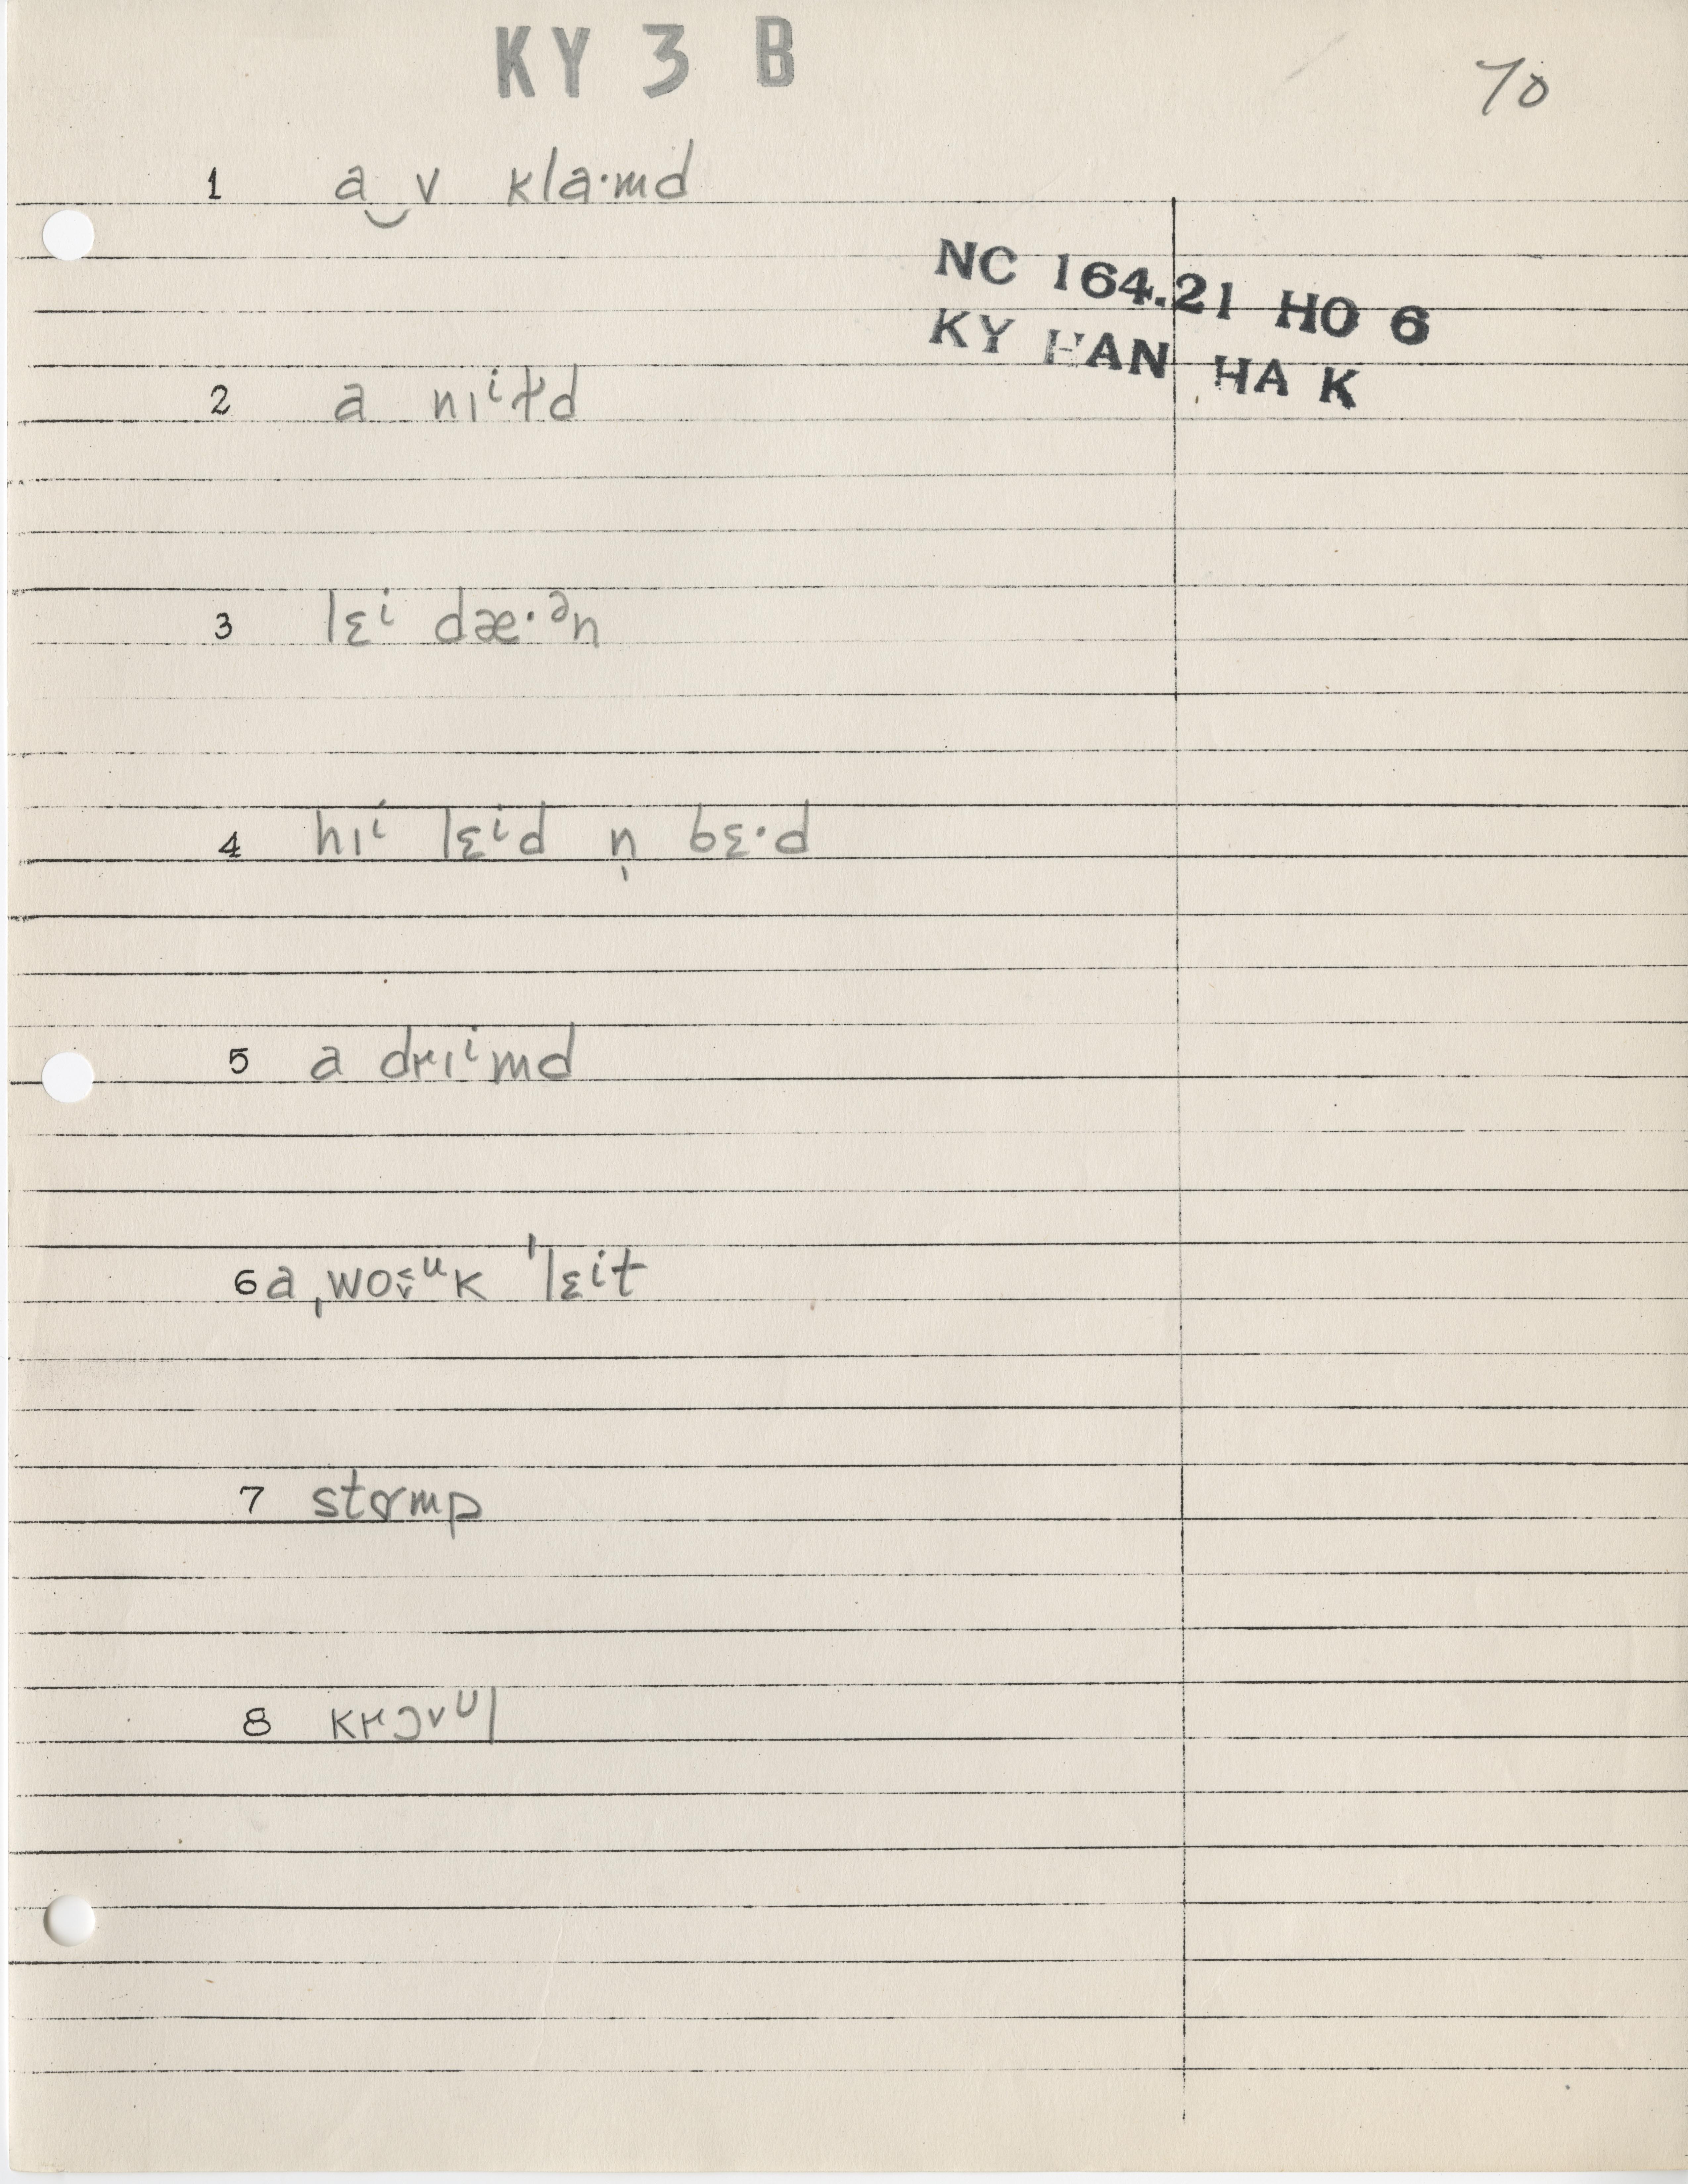 KY 3 B
70
1 a‿v kla·md
NC 164.21 HO 6
KY HAN HA K
2 a nɪⁱɫd
3 lɛⁱ dæ·ᵊn
4 hɪⁱ lɛⁱd n̩ bɛ·d
5 a drɪⁱmd
6 a ˌwoᵘk ˈlɛⁱt
7 stɒmp
8 krɔᶷl